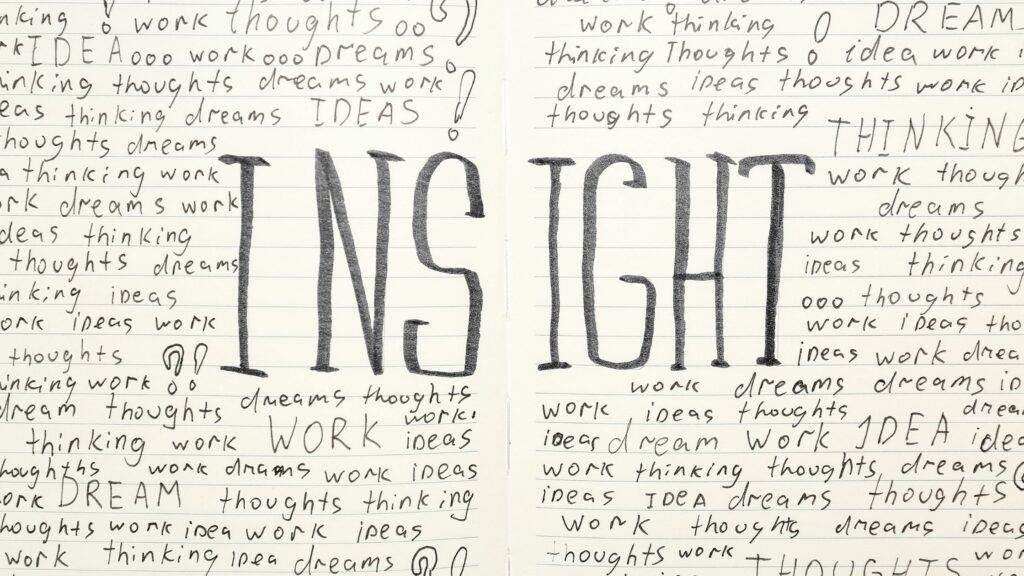 thinking ! work thoughts oo
IDEA ooo work ooo Dreams
thinking thoughts dreams work
thinking dreams IDEAS !
thoughts dreams
thinking work
dreams work
ideas thinking
thoughts dreams
ideas
work ideas work
thoughts
thinking work
dream thoughts dreams thoughts
work!
thinking work WORK ideas
work drams work ideas
work DREAM thoughts thinking
thoughts work idea work ideas
work thinking idea dreams
INSIGHT
work thinking DREAM
thinking Thoughts o idea work
dreams ideas thoughts work
thoughts thinking
THINKING
work
dreams
work thoughts
ideas thinking
ooo thoughts
work ideas
ideas work
work dreams dreams
work ideas thoughts
ideas dream work IDEA
work thinking thoughts dreams
ideas IDEA dreams thoughts
work thoughts dreams ideas
thoughts work THOUGHTS